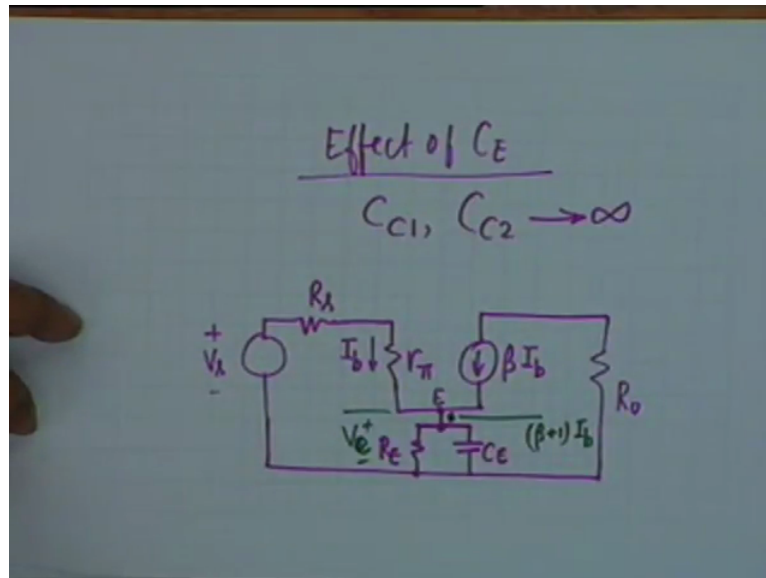 Effect of C_E
C_C1, C_C2 → ∞
R_s
+
V_s
-
I_b ↓
r_π
↓ β I_b
R_o
E
V_e
+
-
R_E
C_E
(β+1) I_b